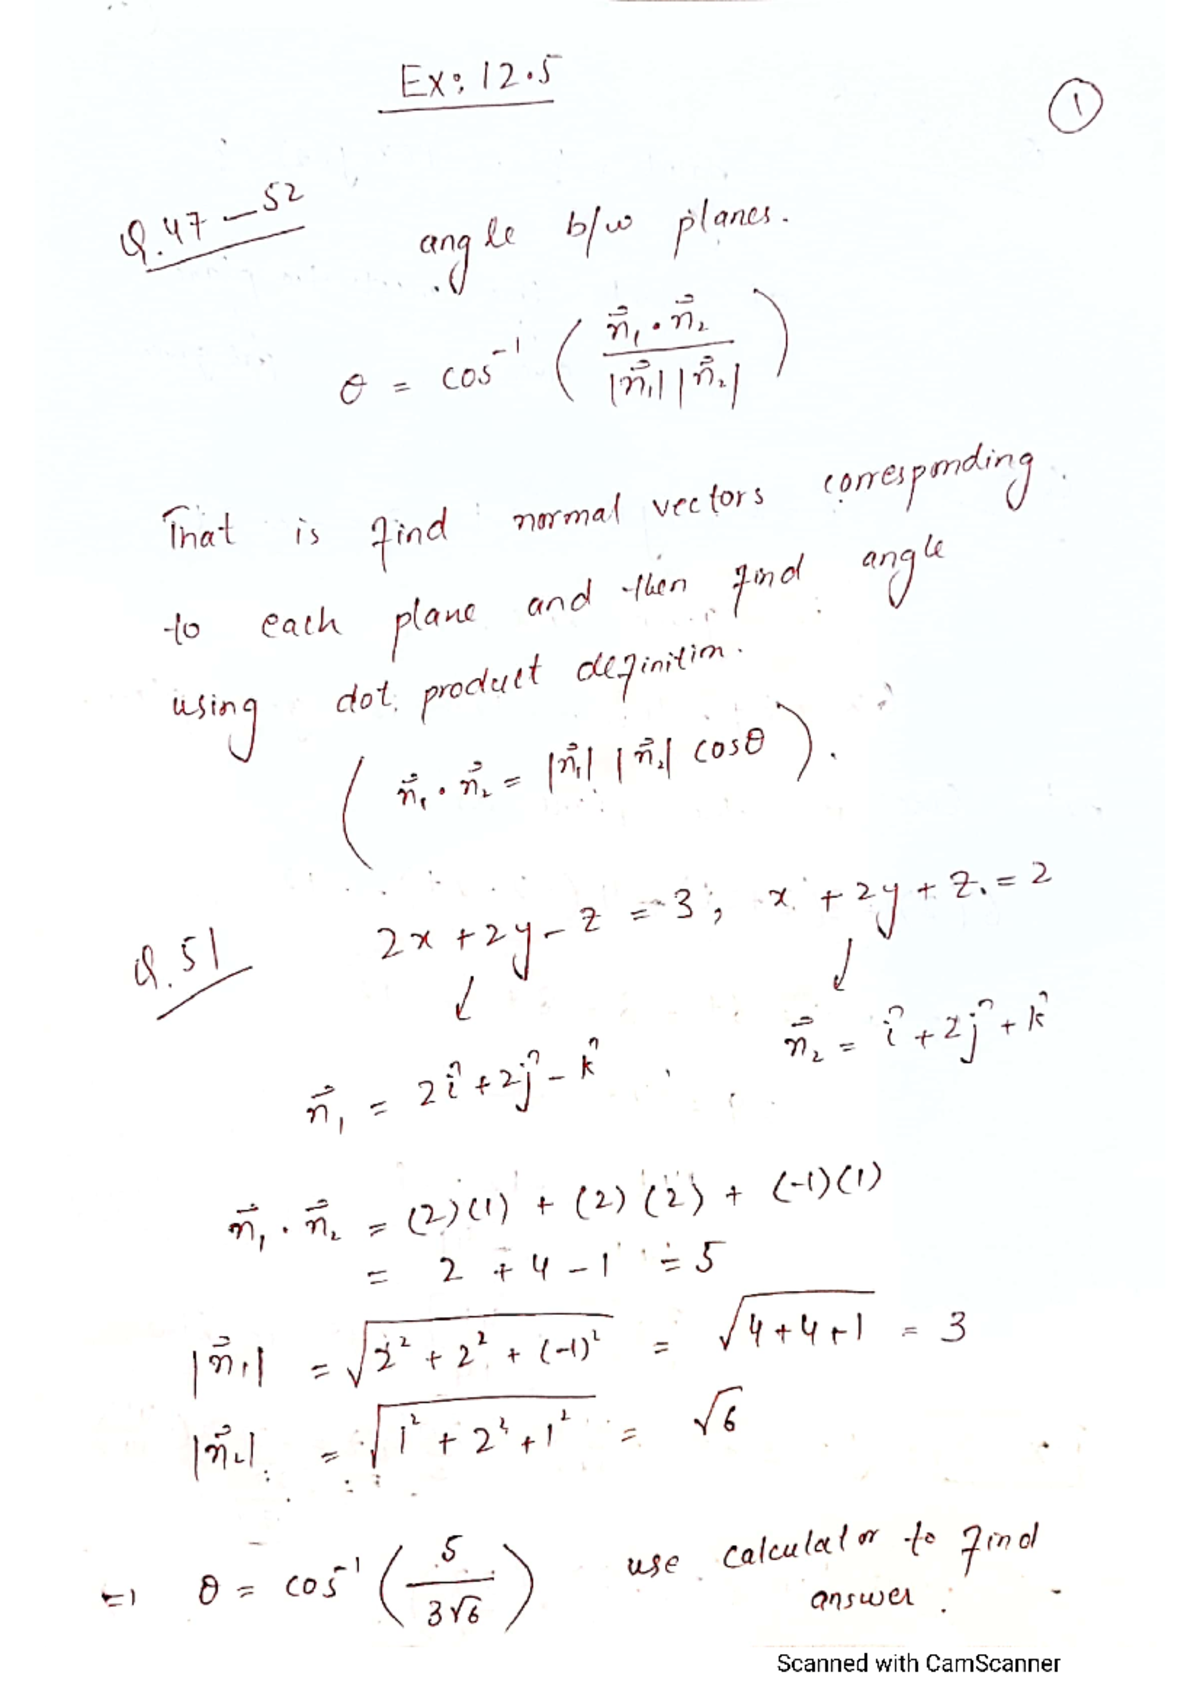 Ex: 12.5
1
Q.47 – 52
angle b/w planes.
θ = cos⁻¹ ( n⃗₁ · n⃗₂ / |n⃗₁| |n⃗₂| )
That is find normal vectors corresponding
to each plane and then find angle
using dot product definition.
( n⃗₁ · n⃗₂ = |n⃗₁| |n⃗₂| cosθ ).
Q.51 2x + 2y – z = 3 ; x + 2y + z = 2
n⃗₁ = 2î + 2ĵ – k̂ , n⃗₂ = î + 2ĵ + k̂
n⃗₁ · n⃗₂ = (2)(1) + (2)(2) + (-1)(1)
= 2 + 4 – 1 = 5
|n⃗₁| = √(2² + 2² + (-1)²) = √(4+4+1) = 3
|n⃗₂| = √(1² + 2² + 1²) = √6
⇒ θ = cos⁻¹ ( 5 / 3√6 ) use calculator to find
answer.
Scanned with CamScanner